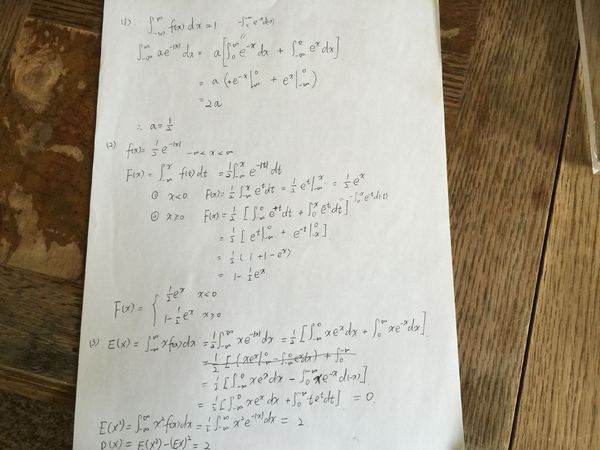 (1) ∫_{-∞}^{∞} f(x) dx = 1 -∫_{-∞}^{∞} e^{-x} d(-x)
∫_{-∞}^{∞} ae^{-|x|} dx = a[∫_{0}^{∞} e^{-x} dx + ∫_{-∞}^{0} e^{x} dx]
= a (+e^{-x}|_{∞}^{0} + e^{x}|_{-∞}^{0})
= 2a
∴ a = 1/2
(2) f(x) = 1/2 e^{-|x|} -∞ < x < ∞
F(x) = ∫_{-∞}^{x} f(t) dt = 1/2 ∫_{-∞}^{x} e^{-|t|} dt
① x<0 F(x) = 1/2 ∫_{-∞}^{x} e^{t} dt = 1/2 e^{t}|_{-∞}^{x} = 1/2 e^{x}
② x≥0 F(x) = 1/2 [∫_{-∞}^{0} e^{t} dt + ∫_{0}^{x} e^{-t} dt] -∫_{0}^{x} e^{-t} d(-t)
= 1/2 [e^{t}|_{-∞}^{0} + e^{-t}|_{x}^{0}]
= 1/2 (1 + 1 - e^{x})
= 1 - 1/2 e^{x}
F(x) = { 1/2 e^{x} x<0
1 - 1/2 e^{x} x≥0
(3) E(x) = ∫_{-∞}^{∞} xf(x) dx = 1/2 ∫_{-∞}^{∞} xe^{-|x|} dx = 1/2 [∫_{-∞}^{0} xe^{x} dx + ∫_{0}^{∞} xe^{-x} dx]
= 1/2 [∫_{-∞}^{0} xe^{x} dx - ∫_{0}^{∞} xe^{-x} d(-x)]
= 1/2 [∫_{-∞}^{0} xe^{x} dx + ∫_{0}^{-∞} te^{t} dt] = 0
E(x²) = ∫_{-∞}^{∞} x² f(x) dx = 1/2 ∫_{-∞}^{∞} x² e^{-|x|} dx = 2
D(x) = E(x²) - (EX)² = 2